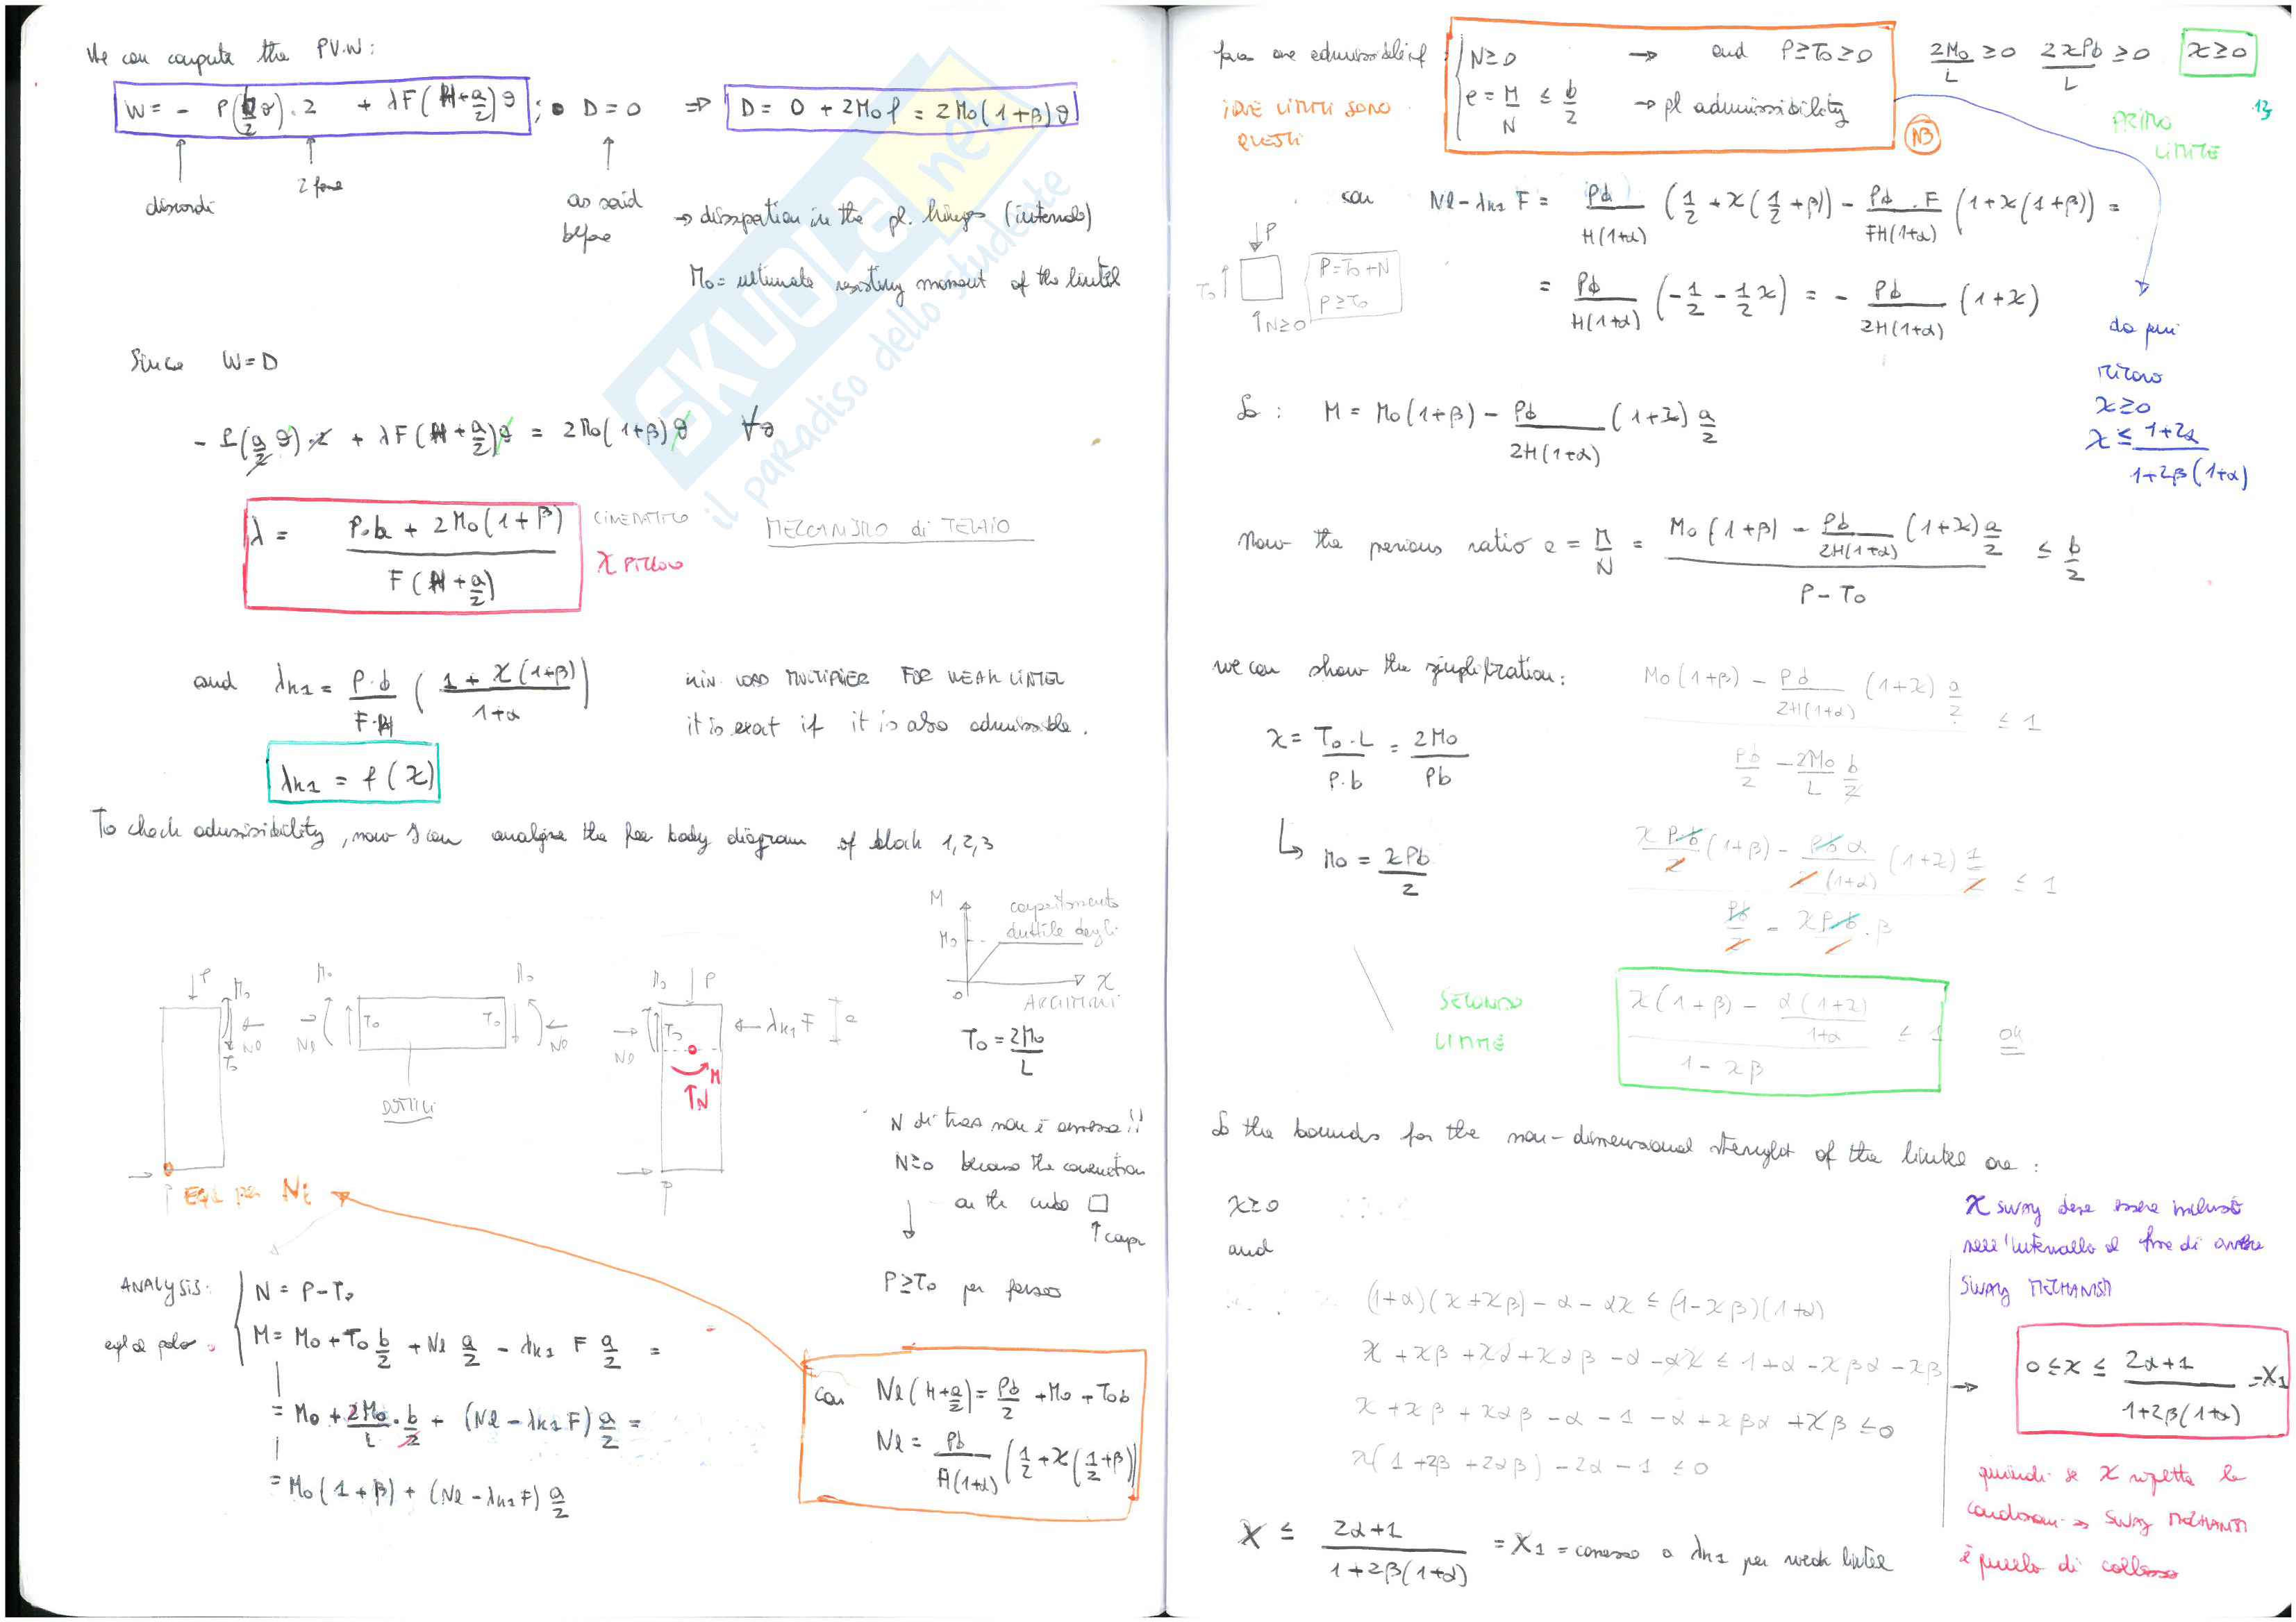 We can compute the PVW:
W = - P(b/2 ϑ) · 2 + λF(H + a/2)ϑ ; • D = 0 ⇒ D = 0 + 2M₀φ = 2M₀(1+β)ϑ
discordi
2 forze
as said
before
→ dissipation in the pl. hinges (internal)
M₀ = ultimate resisting moment of the lintel
Since W = D
- P(b/2 ϑ)·2 + λF(H + a/2)ϑ = 2M₀(1+β)ϑ ∀ϑ
λ = P·b + 2M₀(1+β) / F(H + a/2)
CINEMATICO
χ PICCOLO
MECCANISMO di TELAIO
and λk1 = P·b / F·H ( 1 + χ(1+β) / 1+α )
MIN. LOAD MULTIPLIER FOR WEAK LINTEL
it is exact if it is also admissible.
λk1 = f(χ)
To check admissibility, now I can analyse the free body diagram of block 1,2,3
M
M₀
comportamento
duttile degli
0
χ
ARCHITRAVI
T₀ = 2M₀/L
P
M₀
T₀
Nl
M₀
T₀
T₀
M₀
Nl
Nl
DUTTILI
M₀
P
T₀
Nl
λk1 F
a
M
N
Eql per Nl
N di traz non è ammessa!!
N≥0 because the connection
on the cubo
↑ compr
P≥T₀ per forza
ANALYSIS:
N = P - T₀
eql al polo
M = M₀ + T₀ b/2 + Nl a/2 - λk1 F a/2 =
= M₀ + 2M₀/L · b/2 + (Nl - λk1 F) a/2 =
= M₀(1+β) + (Nl - λk1 F) a/2
con Nl(H + a/2) = Pb/2 + M₀ + T₀b
Nl = Pb / H(1+α) (1/2 + χ(1/2 + β))
12
forces are admissible if :
N≥0 → and P≥T₀≥0
e = M/N ≤ b/2 → pl admissibility
2M₀/L ≥ 0 2χPb/L ≥ 0 χ≥0
I DUE LIMITI SONO
QUESTI
NB
PRIMO
LIMITE
con Nl - λk1 F = Pb / H(1+α) (1/2 + χ(1/2 + β)) - Pb · F / FH(1+α) (1 + χ(1+β)) =
P
T₀
N≥0
P = T₀ + N
P ≥ T₀
= Pb / H(1+α) (-1/2 - 1/2 χ) = - Pb / 2H(1+α) (1+χ)
da qui
ritrovo
χ≥0
χ ≤ 1+2α / 1+2β(1+α)
So : M = M₀(1+β) - Pb / 2H(1+α) (1+χ) a/2
Now the previous ratio e = M/N = M₀(1+β) - Pb / 2H(1+α) (1+χ) a/2 / P - T₀ ≤ b/2
we can show the simplification:
M₀(1+β) - Pb / 2H(1+α) (1+χ) a/2 / Pb/2 - 2M₀/L b/2 ≤ 1
χ = T₀·L / P·b = 2M₀ / Pb
↳ M₀ = χPb / 2
χPb/2 (1+β) - Pb α / 2(1+α) (1+χ) 1/2 / Pb/2 - χPb/2 · β ≤ 1
SECONDO
LIMITE
χ(1+β) - α(1+χ) / 1+α / 1 - χβ ≤ 1
OK
So the bounds for the non-dimensional strenght of the lintel are :
χ≥0
and
(1+α)(χ+χβ) - α - αχ ≤ (1-χβ)(1+α)
χ + χβ + χα + χαβ - α - αχ ≤ 1 + α - χβα - χβ
χ + χβ + χαβ - α - 1 - α + χβα + χβ ≤ 0
χ(1 + 2β + 2αβ) - 2α - 1 ≤ 0
χ ≤ 2α+1 / 1+2β(1+α) = χ₁ = connesso a λk1 per weak lintel
χ sway deve essere incluso
nell'intervallo al fine di avere
SWAY MECHANISM
→ 0 ≤ χ ≤ 2α+1 / 1+2β(1+α) = χ₁
quindi se χ rispetta le
condizioni → SWAY MECHANISM
è quello di collasso
SKUOLA.net
il paradiso dello studente